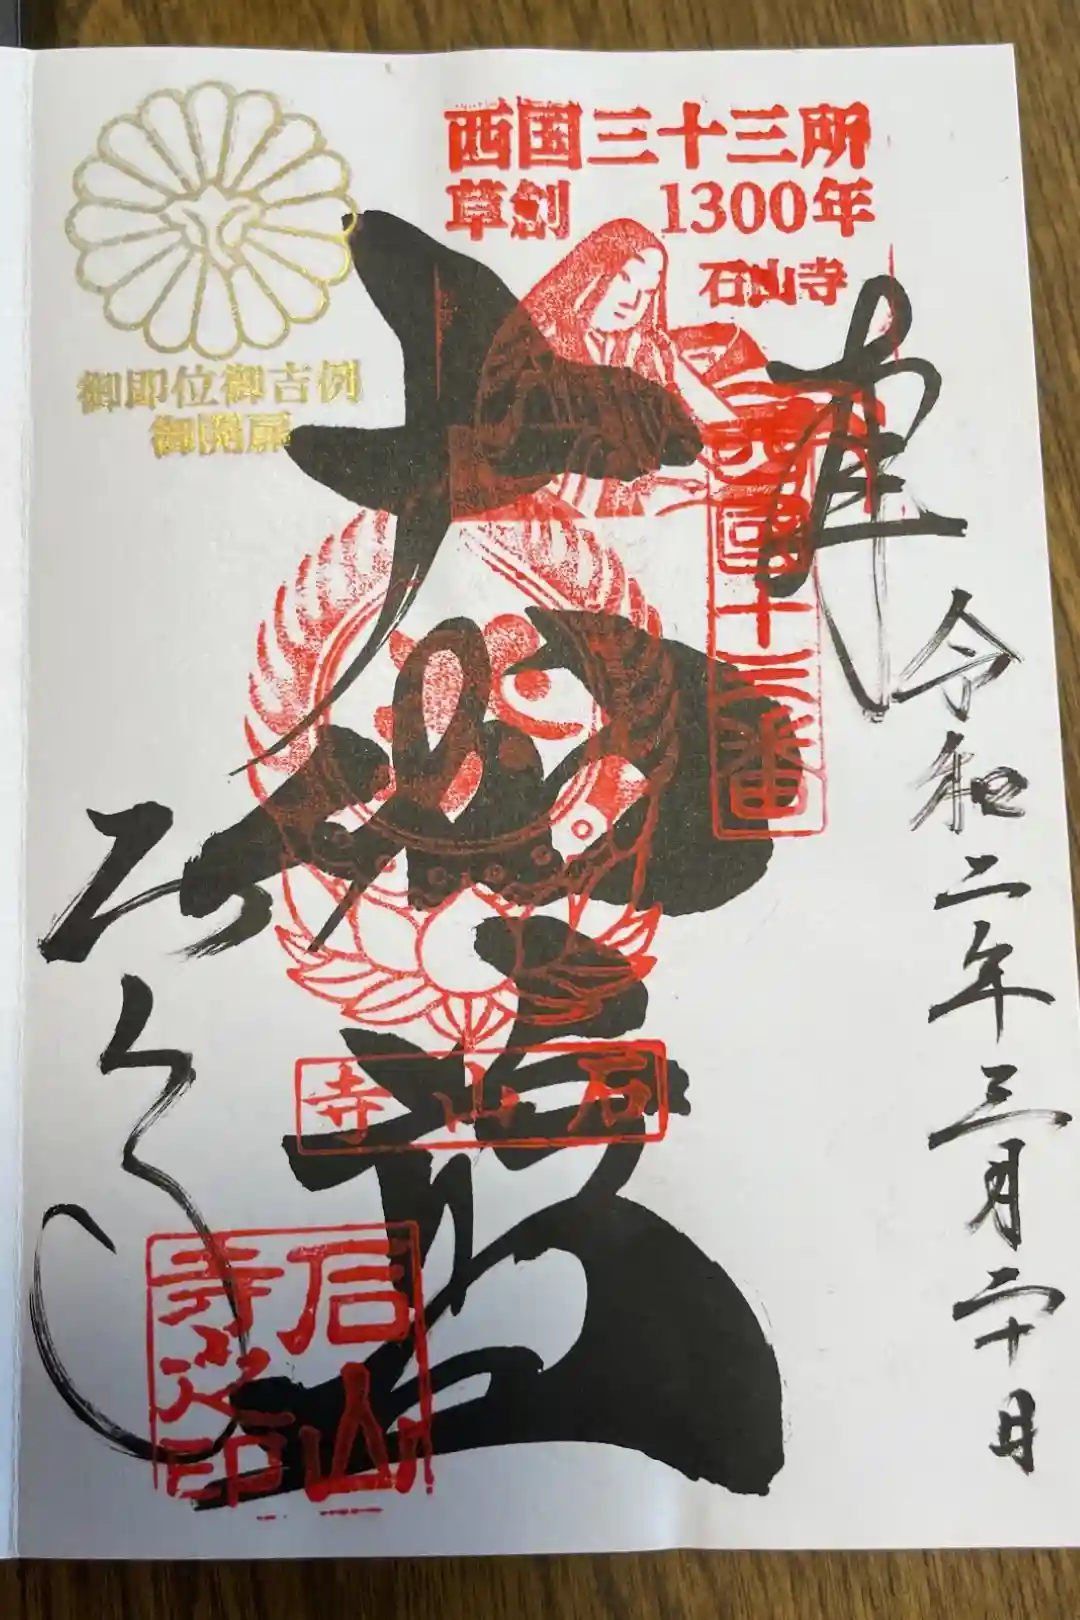 西国三十三所
草創 1300年
石山寺
御即位御古例
御開扉
奉拝
西国十三番
令和二年三月二十日
大伽藍
石山寺
石山寺
石山寺之印